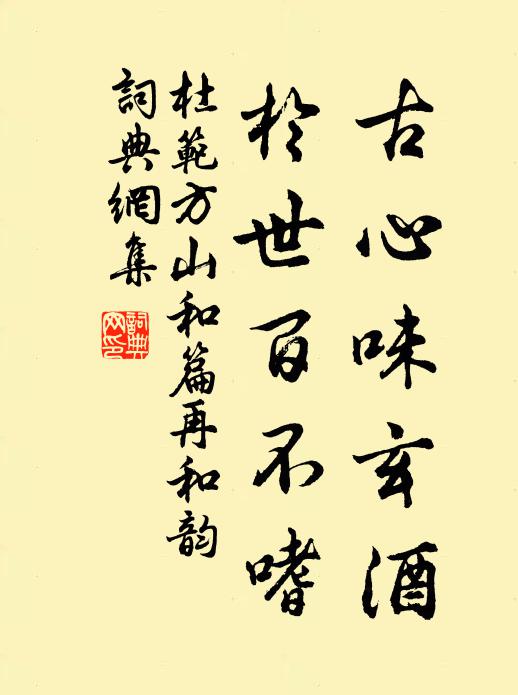 古心味玄酒
於世百不嗜
杜範方山和篇再和韵
詞典網集
詞典網印